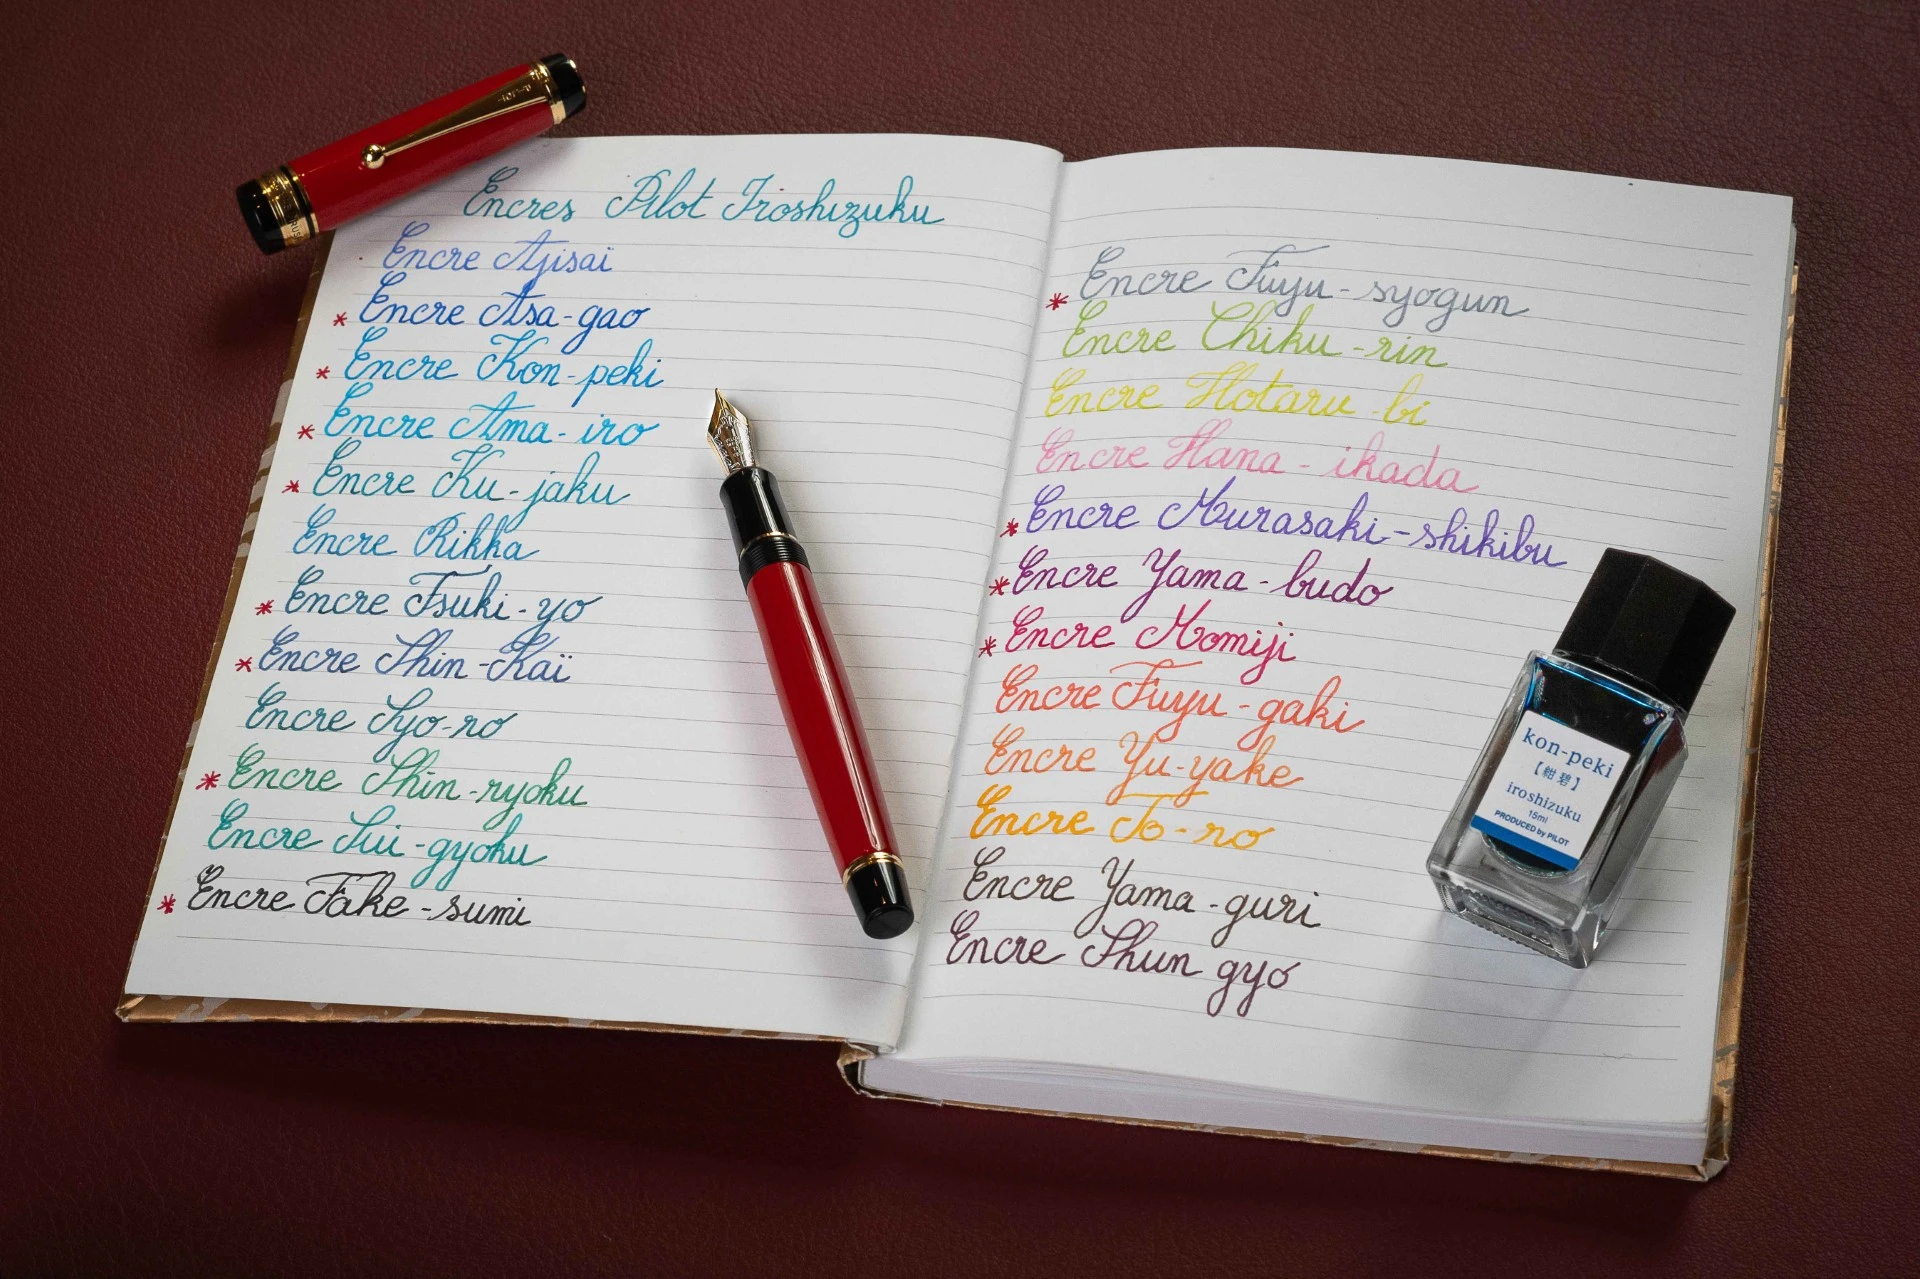 Encres Pilot Iroshizuku
Encre Ajisaï
* Encre Asa-gao
* Encre Kon-peki
* Encre Ama-iro
* Encre Ku-jaku
Encre Rikka
* Encre Tsuki-yo
* Encre Shin-Kaï
Encre Syo-ro
* Encre Shin-ryoku
Encre Sui-gyoku
* Encre Take-sumi
* Encre Fuyu-syogun
Encre Chiku-rin
Encre Hotaru-bi
Encre Hana-ikada
* Encre Murasaki-shikibu
* Encre Yama-budo
* Encre Momiji
Encre Fuyu-gaki
Encre Yu-yake
Encre To-ro
Encre Yama-guri
Encre Shun gyo
kon-peki
【紺碧】
iroshizuku
15ml
PRODUCED by PILOT